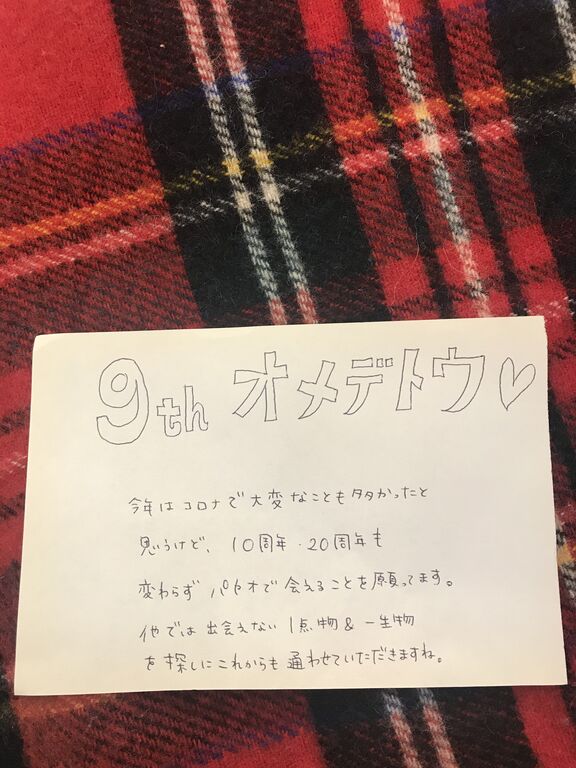 9th オメデトウ♡
今年はコロナで大変なことも多かったと
思うけど、10周年・20周年も
変わらずパヤオで会えることを願ってます。
他では出会えない1点物&一生物
を探しにこれからも通わせていただきますね。